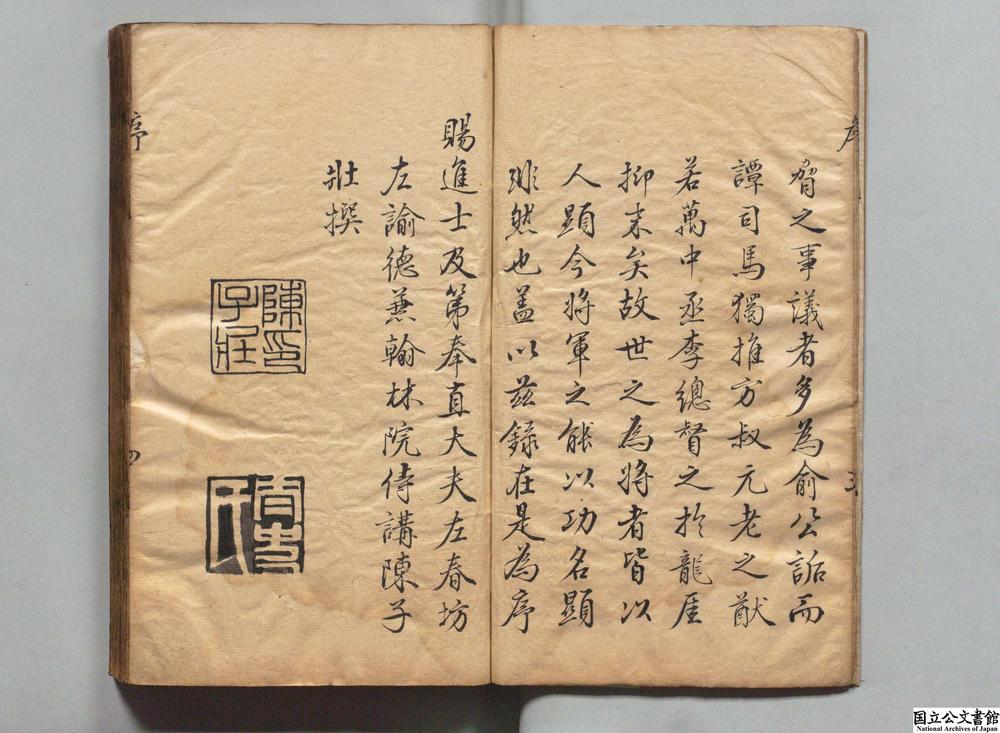 脅之事議者多為俞公詬而
譚司馬獨推方叔元老之猷
若萬中丞李總督之於龍厓
抑末矣故世之為將者皆以
人顯今將軍之能以功名顯
非然也盖以茲錄在是為序
賜進士及第奉直大夫左春坊
左諭德兼翰林院侍講陳子
壯撰
陳印子壯
序
序
四
国立公文書館
National Archives of Japan